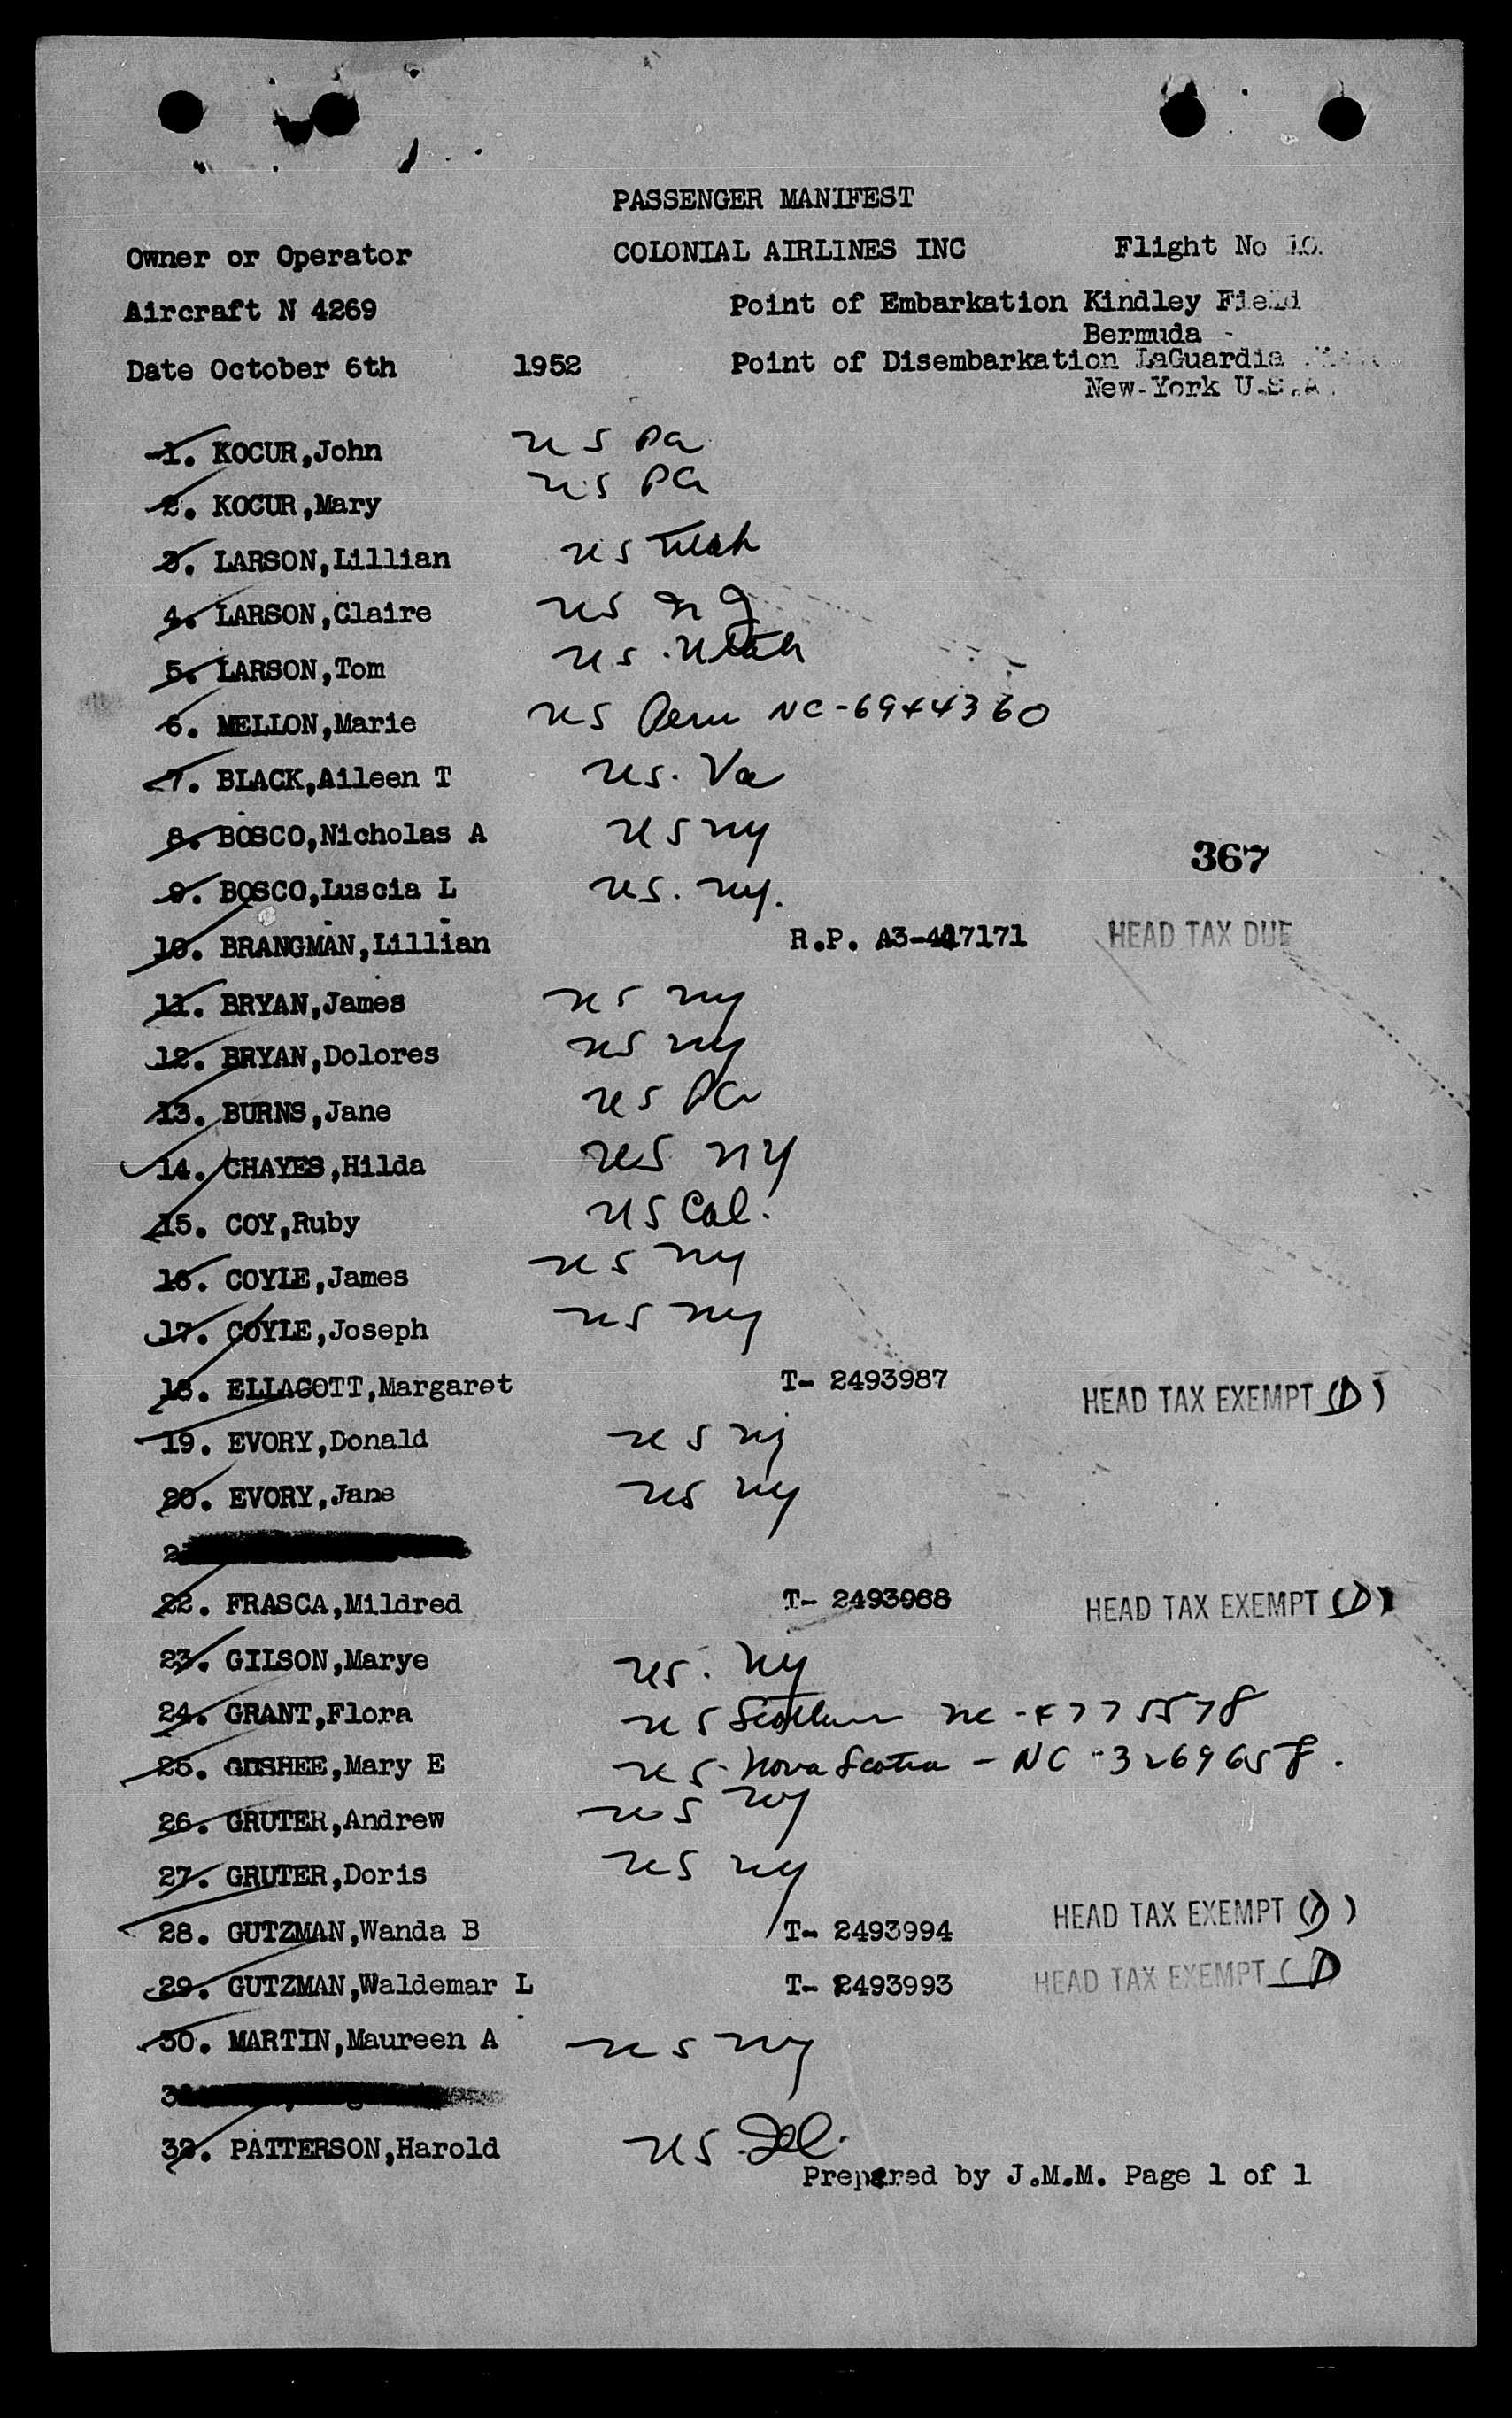 PASSENGER MANIFEST
Owner or Operator COLONIAL AIRLINES INC Flight No 10.
Aircraft N 4269 Point of Embarkation Kindley Field
Bermuda -
Date October 6th 1952 Point of Disembarkation LaGuardia
New-York U.S.A.
1. KOCUR,John US Pa
2. KOCUR,Mary US PA
3. LARSON,Lillian US Utah
4. LARSON,Claire US NJ
5. LARSON,Tom US. Utah
6. MELLON,Marie US Peru NC-6944360
7. BLACK,Aileen T US. Va
8. BOSCO,Nicholas A US NY
367
9. BOSCO,Luscia L US. NY.
10. BRANGMAN,Lillian R.P. A3-417171 HEAD TAX DUE
11. BRYAN,James US NY
12. BRYAN,Dolores US NY
13. BURNS,Jane US PA
14. CHAYES,Hilda US NY
15. COY,Ruby US Cal.
16. COYLE,James US NY
17. COYLE,Joseph US NY
18. ELLACOTT,Margaret T- 2493987 HEAD TAX EXEMPT (D)
19. EVORY,Donald US NJ
20. EVORY,Jane US NY
2
22. FRASCA,Mildred T- 2493988 HEAD TAX EXEMPT (D)
23. GILSON,Marye US. NY
24. GRANT,Flora US Scotland NC-4775578
25. GUSHEE,Mary E US- Nova Scotia - NC-3269658.
26. GRUTER,Andrew US NY
27. GRUTER,Doris US NY
28. GUTZMAN,Wanda B T- 2493994 HEAD TAX EXEMPT (D)
29. GUTZMAN,Waldemar L T- 2493993 HEAD TAX EXEMPT (D
30. MARTIN,Maureen A US NY
3
32. PATTERSON,Harold US. Del.
Prepared by J.M.M. Page 1 of 1